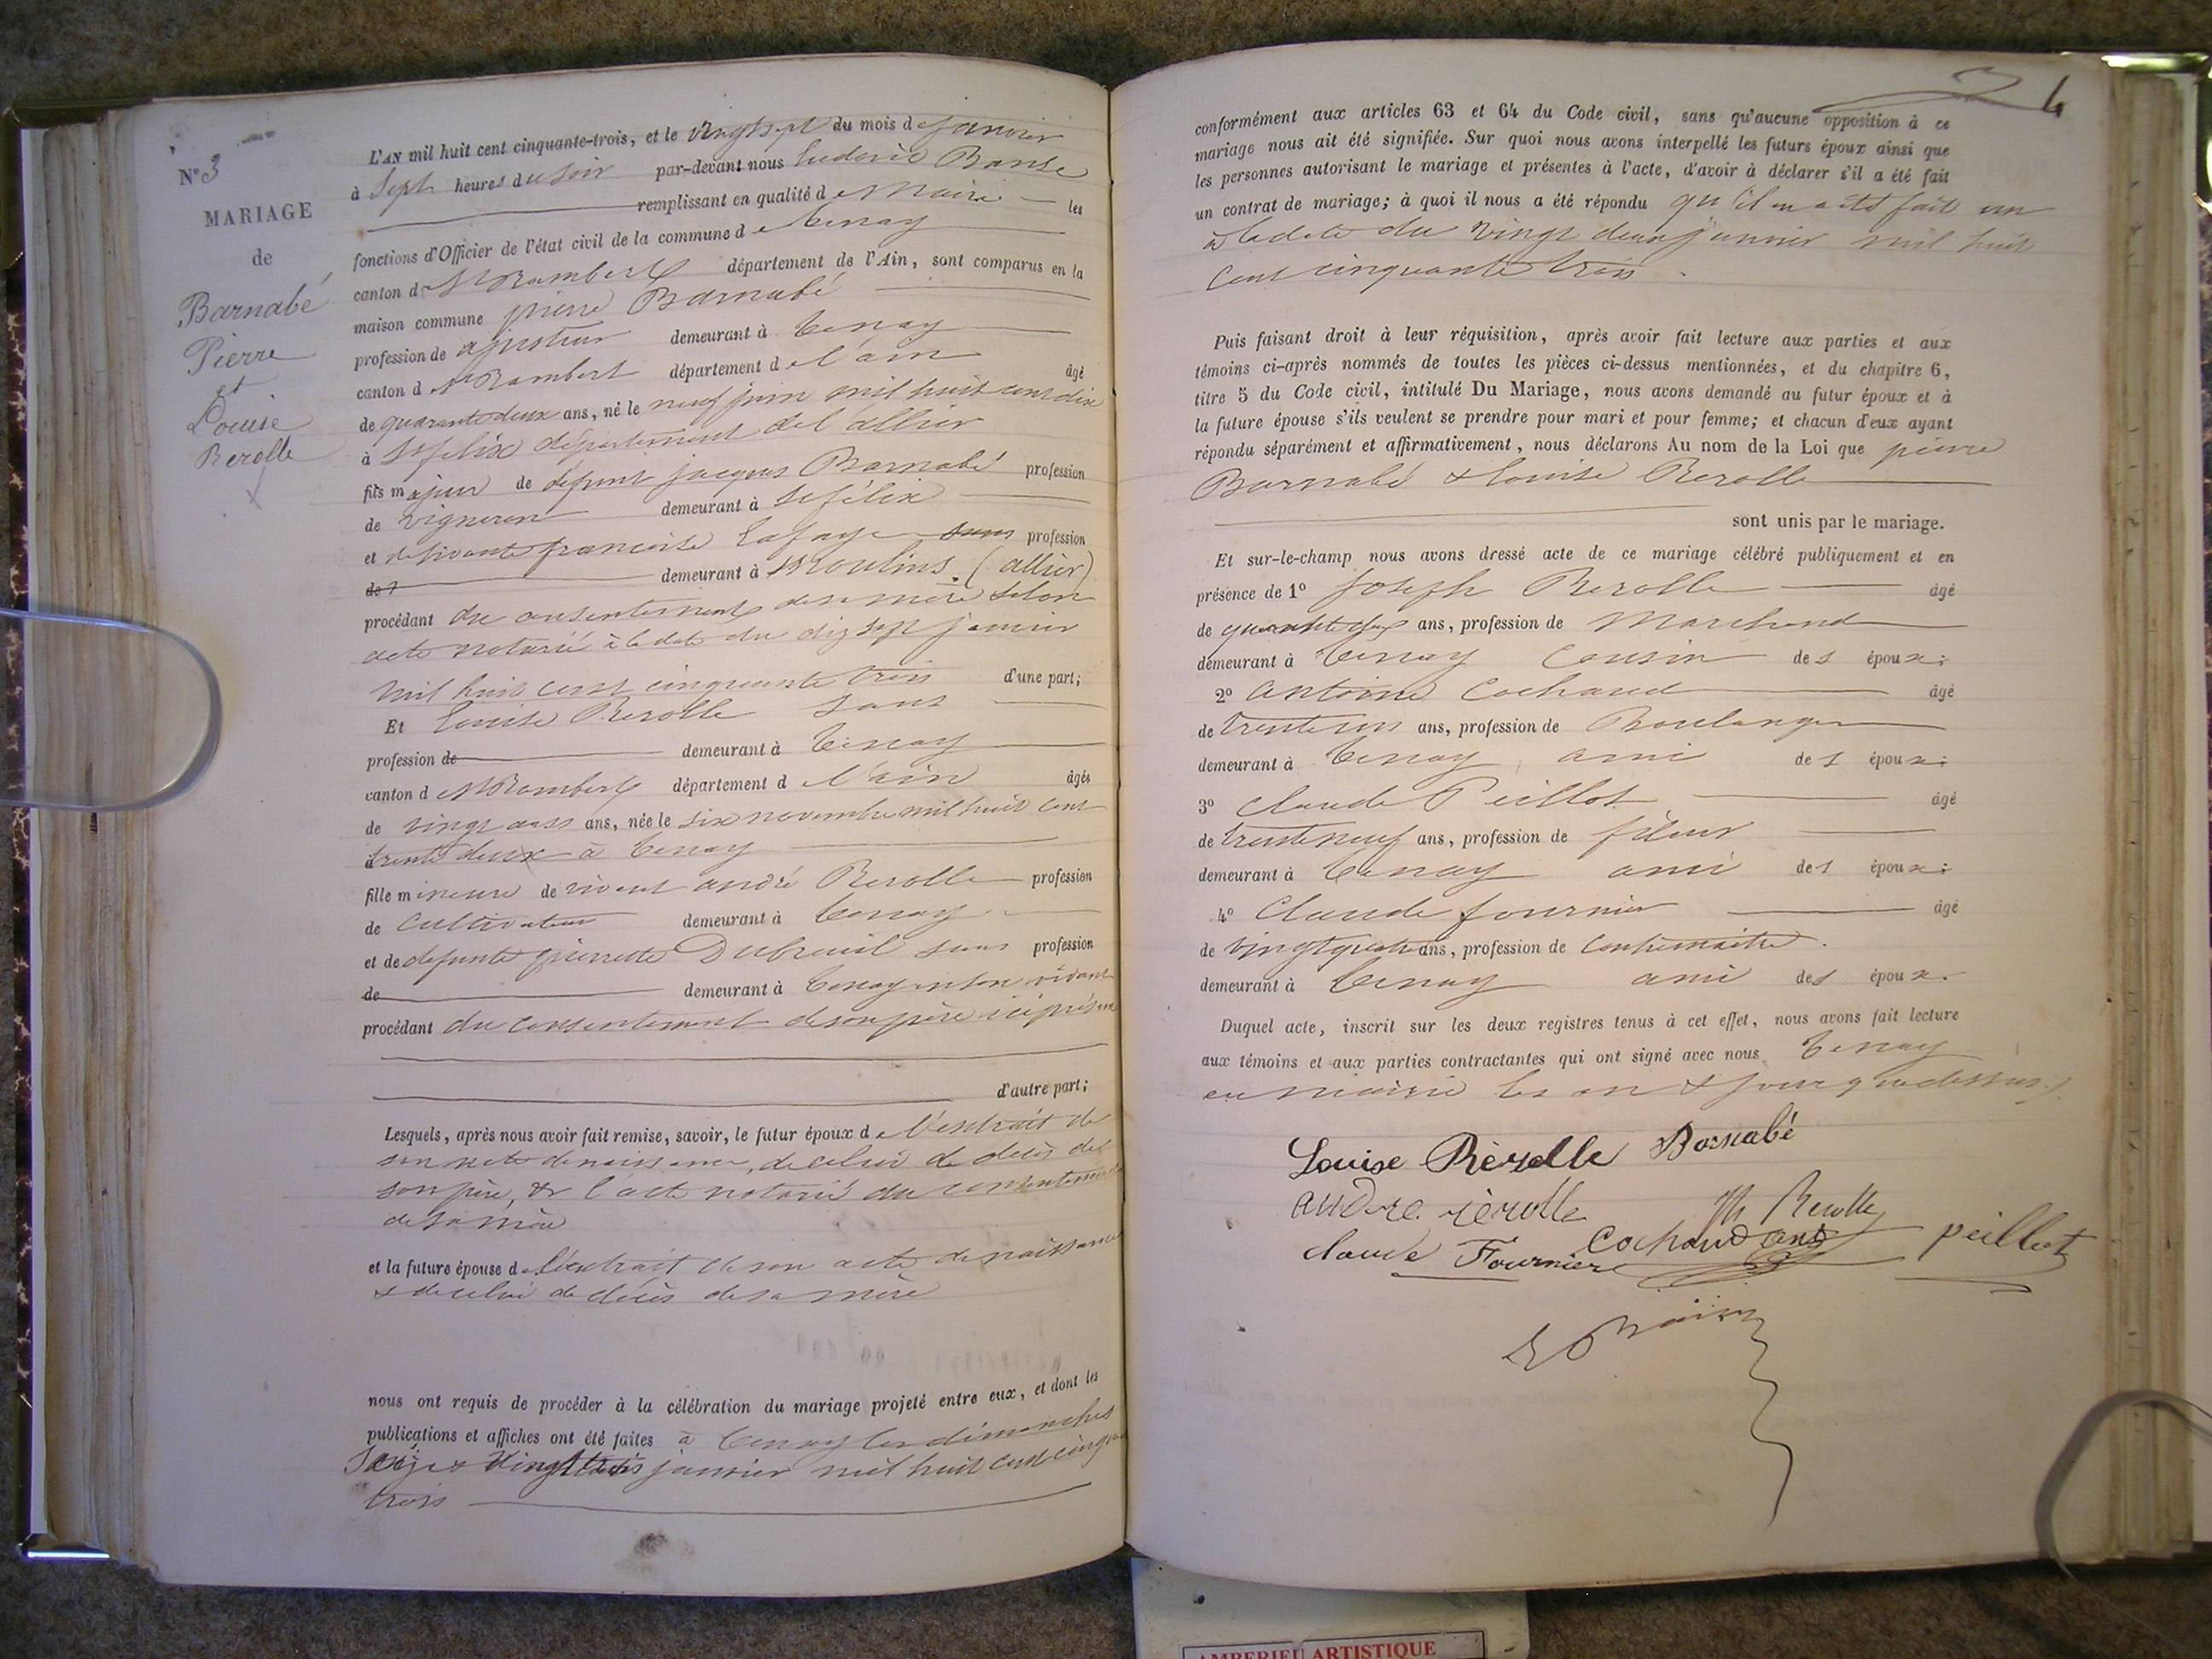 N° 3
MARIAGE
de
Barnabé
Pierre
et
Louise
Rerolle
L'AN mil huit cent cinquante-trois, et le vingt sept du mois de janvier
à Sept heures du soir par-devant nous
remplissant en qualité de Maire les
fonctions d'Officier de l'état civil de la commune de Tenay
canton de St Rambert département de l'Ain, sont comparus en la
maison commune pierre Barnabé
profession de ajusteur demeurant à Tenay
canton de St Rambert département de l'ain âgé
de quarante deux ans, né le neuf juin mil huit cent dix
à St felix département de l'allier
fils majeur de défunt jacques Barnabé profession
de vigneron demeurant à St félix
et de vivante francoise Lafaye sans profession
de demeurant à Moulins. (allier)
procédant du consentement de sa mère selon
acte notarié à la date du dix sept janvier
mil huit cent cinquante trois d'une part;
Et Louise Rerolle sans
profession de demeurant à Tenay
canton de St Rambert département de l'ain âgée
de vingt ans, née le six novembre mil huit cent
trente deux à Tenay
fille mineure de vivant andré Rerolle profession
de Cultivateur demeurant à Tenay
et de defunte pierrette Dubreuil sans profession
de demeurant à Tenay en son vivant
procédant du consentement de son père ici présent
d'autre part;
Lesquels, après nous avoir fait remise, savoir, le futur époux de l'extrait de
son acte de naissance, de celui de décès de
son père, & l'acte notarié du consentement
de sa mère
et la future épouse de l'extrait de son acte de naissance
& de celui de décès de sa mère
nous ont requis de procéder à la célébration du mariage projeté entre eux, et dont les
publications et affiches ont été faites à Tenay les dimanches
Seize & Vingt trois janvier mil huit cent cinquante
trois
4
conformément aux articles 63 et 64 du Code civil, sans qu'aucune opposition à ce
mariage nous ait été signifiée. Sur quoi nous avons interpellé les futurs époux ainsi que
les personnes autorisant le mariage et présentes à l'acte, d'avoir à déclarer s'il a été fait
un contrat de mariage; à quoi il nous a été répondu qu'il en a été fait un
à la date du vingt deux janvier mil huit
cent cinquante trois.
Puis faisant droit à leur réquisition, après avoir fait lecture aux parties et aux
témoins ci-après nommés de toutes les pièces ci-dessus mentionnées, et du chapitre 6,
titre 5 du Code civil, intitulé Du Mariage, nous avons demandé au futur époux et à
la future épouse s'ils veulent se prendre pour mari et pour femme; et chacun d'eux ayant
répondu séparément et affirmativement, nous déclarons Au nom de la Loi que pierre
Barnabé & Louise Rerolle
sont unis par le mariage.
Et sur-le-champ nous avons dressé acte de ce mariage célébré publiquement et en
présence de 1° Joseph Rerolle âgé
de ans, profession de Marchand
demeurant à Tenay Cousin des époux;
2° Antoine Cochaud âgé
de trente un ans, profession de Boulanger
demeurant à Tenay ami des époux;
3° Claude Peillot âgé
de trente neuf ans, profession de fileur
demeurant à Tenay ami des époux;
4° Claude fournier âgé
de vingt quatre ans, profession de Contremaitre.
demeurant à Tenay ami des époux.
Duquel acte, inscrit sur les deux registres tenus à cet effet, nous avons fait lecture
aux témoins et aux parties contractantes qui ont signé avec nous. Tenay
en mairie les an & jour que dessus
Louise Rèrolle Barnabé
andre rèrolle Jh Rerolle
claude Fournier Cochaud ant peillot
AMBERIEU ARTISTIQUE